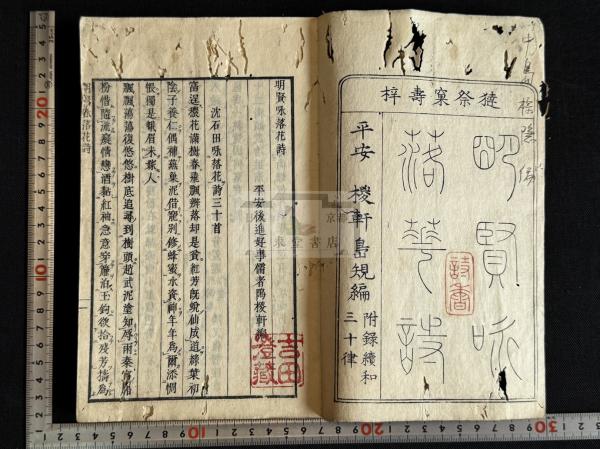 獺祭窠壽梓
明賢咏
落華詩
平安 稷軒島規編
附錄續和
三十律
詩書
明賢咏落花詩
平安後進好事儒者島稷軒編
沈石田咏落花詩三十首
富逞穠花滿樹春飄瓣落却是貧紅芳旣蛻仙成道綠葉初
陰子養仁偶補蕪巢泥借寵別修蜂蜜水資神年年爲爾添惆
悵獨是蛾眉未嫁人
飄飄蕩蕩復悠悠樹底追尋到樹頭趙武泥塗知辱雨秦宮脂
粉惜隨流癡情戀酒黏紅袖急意穿簾泊玉鉤欲拾殘芳擣爲
明賢咏落花詩
吉田
澄藏